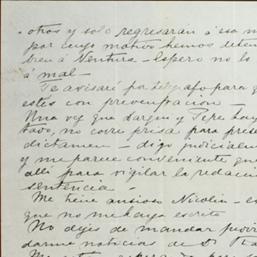 otros y solo regresaran á esa m
por cuyo motivo hemos deten
bren á Ventura - Espero no lo
á mal -
Te avisaré por telégrafo para q
estés con prevencion -
Una vez que Vargas y Pepe hay
tado, no corre prisa para prese
dictamen - digo judicialm
y me parece conveniente que
allí para vigilar la redacci
sentencia -
Me tiene ansioso Nicolin - e
que no me haya escrito
No dejes de mandar
darme noticias de Dn